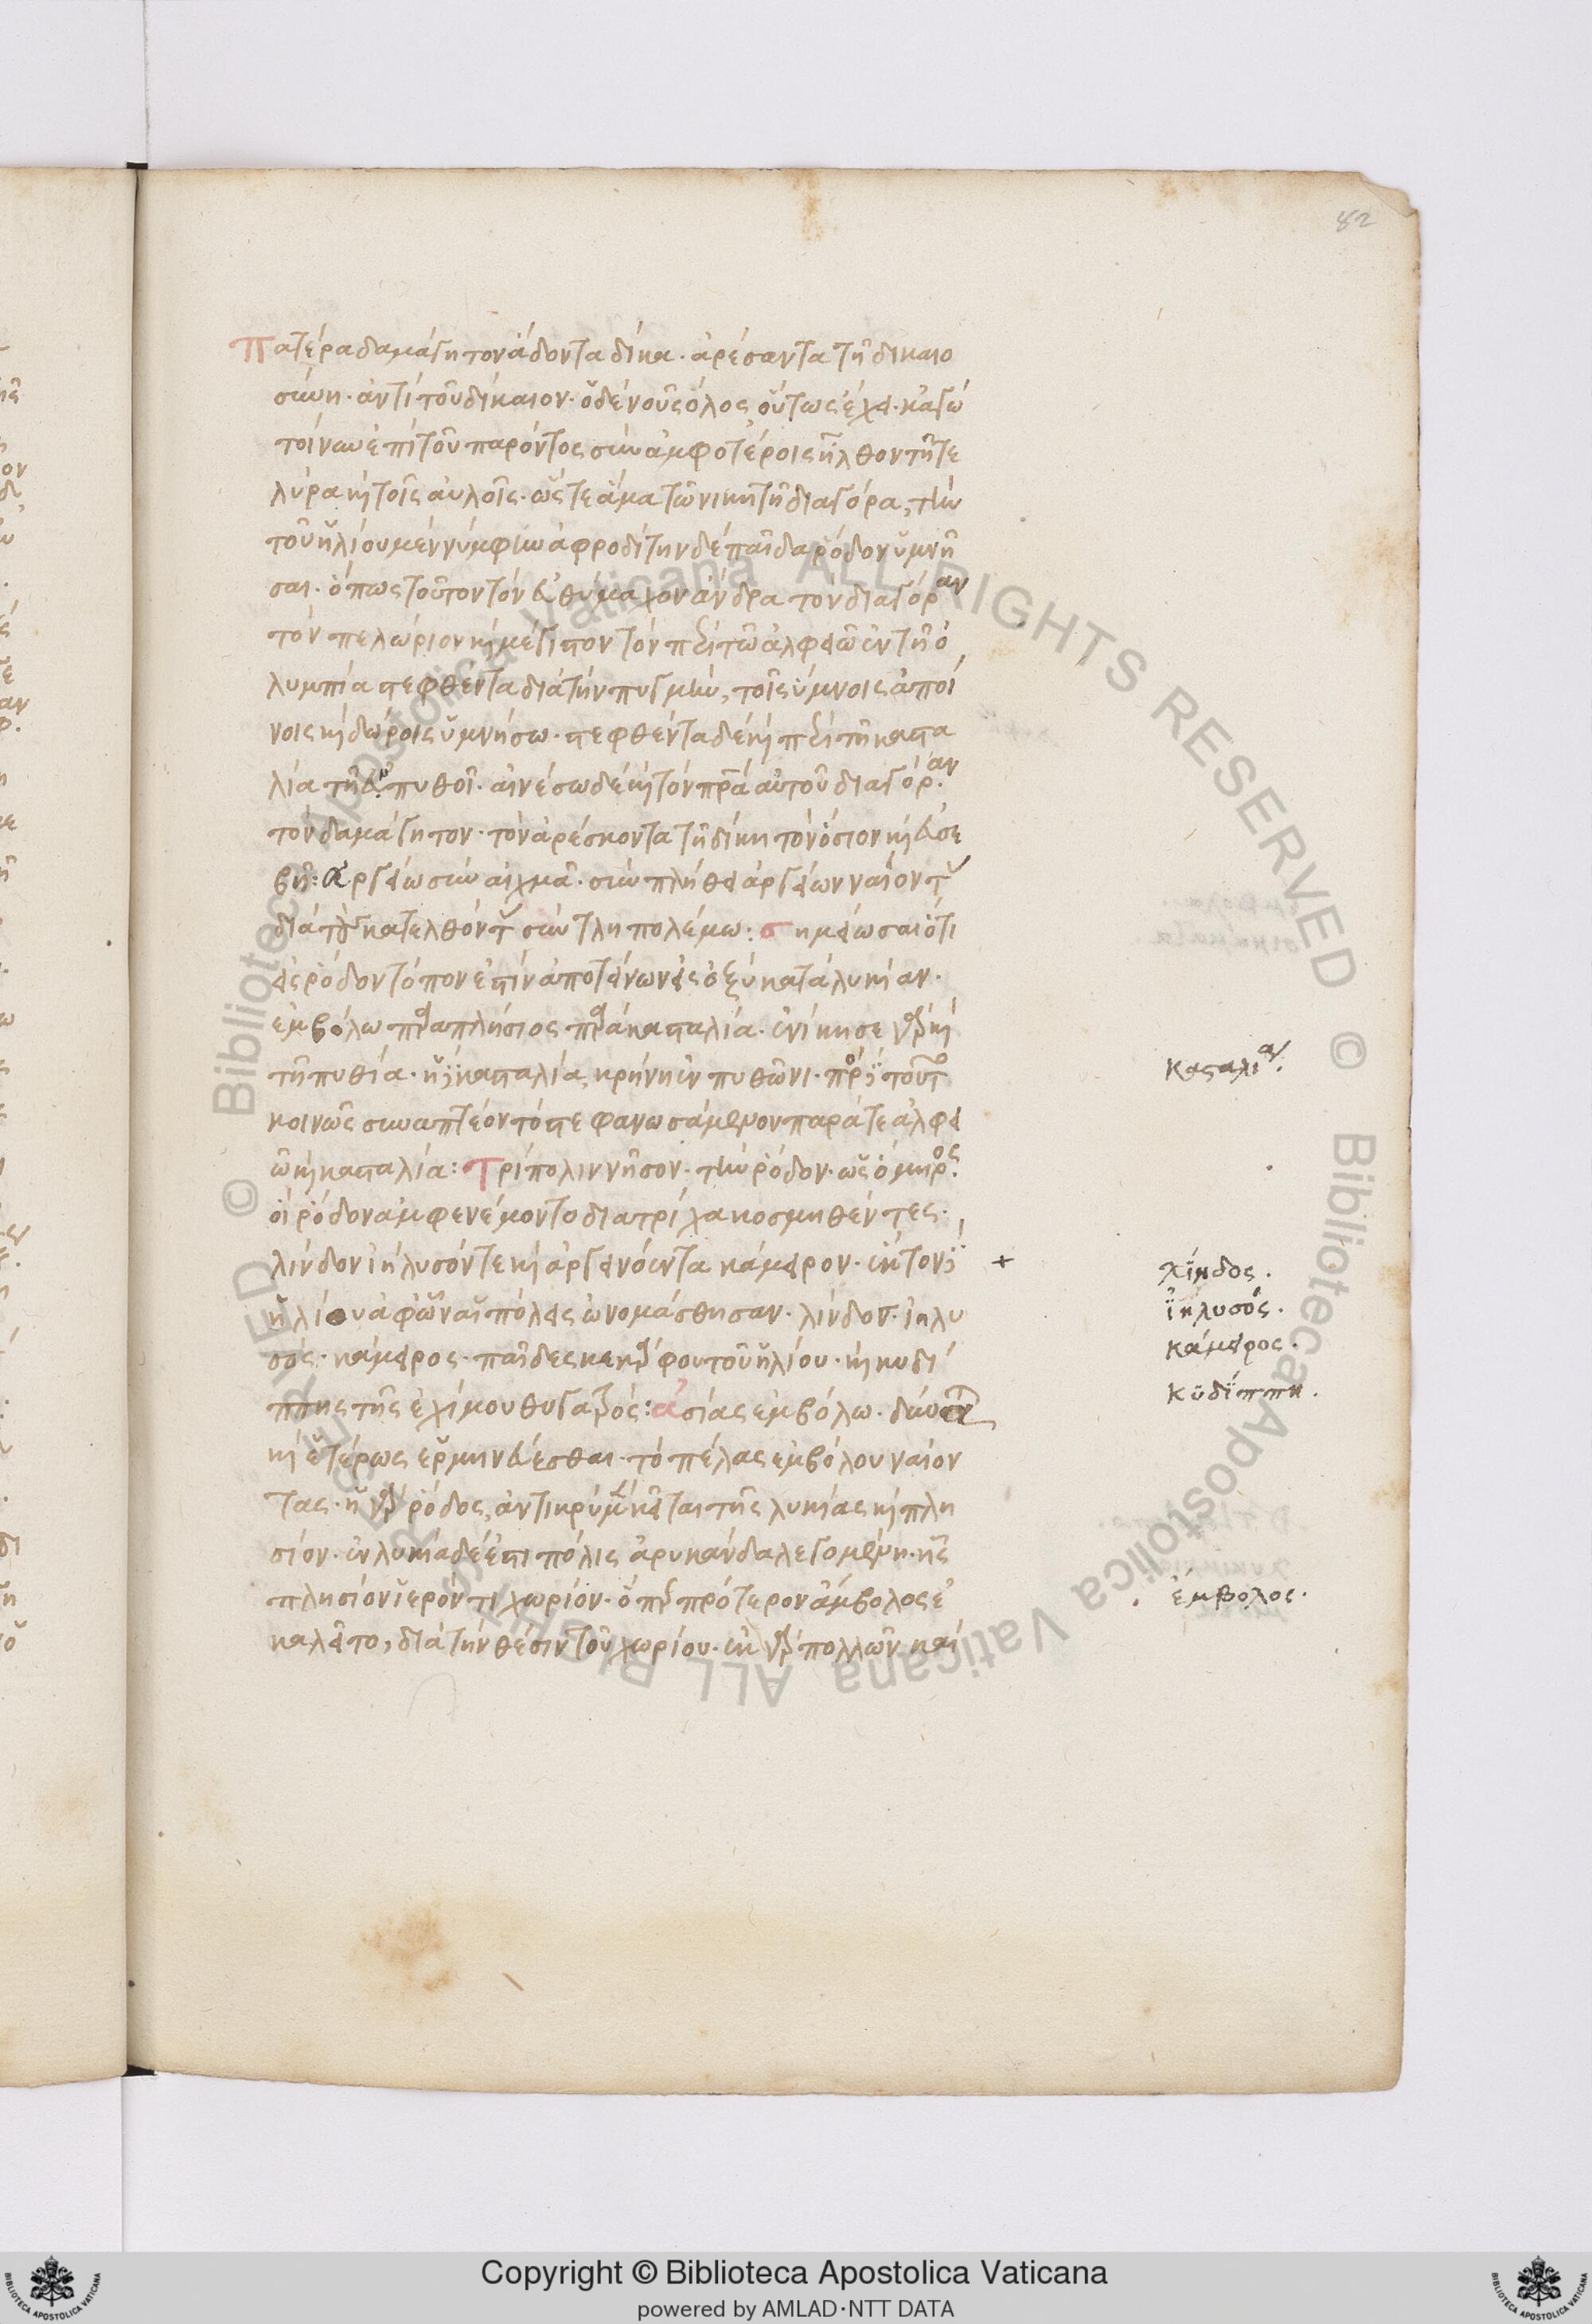 82
Πατέρα δαμάγητον ἁδόντα δίκα· ἀρέσαντα τῆ δικαιο
σύνη· ἀντὶ τοῦ δίκαιον· ὁ δὲ νοῦς ὅλος οὕτως ἔχει· κἀγὼ
τοίνυν ἐπὶ τοῦ παρόντος σὺν ἀμφοτέροις ἦλθον τῆ τε
λύρα καὶ τοῖς αὐλοῖς· ὥστε ἅμα τῶ νικητῆ διαγόρα, τὴν
τοῦ ἡλίου μὲν νύμφην ἀφροδίτην δὲ παῖδα ῥόδον ὑμνῆ
σαι· ὅπως τοῦτον τὸν εὐθυμάχον ἄνδρα τὸν διαγόραν
τὸν πελώριον καὶ μέγιστον τὸν περὶ τῶ ἀλφειῶ ἐν τῆ ὀ
λυμπία στεφθέντα διὰ τὴν πυγμὴν, τοῖς ὕμνοις ἀποί
νοις καὶ δώροις ὑμνήσω· στεφθέντα δὲ καὶ περὶ τῆ καστα
λία τῆ ἐν πυθοῖ· αἰνέσω δὲ καὶ τὸν πρα αὐτοῦ διαγόραν
τὸν δαμάγητον· τὸν ἀρέσκοντα τῆ δίκη τὸν ὅσιον καὶ εὐσε
βῆ: ἀργείω σὺν αἰχμᾶ· σὺν πλήθει ἀργείων ναίοντ
διὰ τοὺς κατελθόντ σὺν τληπολέμω: σημείωσαι ὅτι
εἰς ῥόδον τόπον ἐστὶν ἀποτείνων εἰς ὀξὺ κατὰ λυκίαν·
ἐμβόλω παραπλήσιος παρὰ κασταλία· ἐνίκησε γὰρ καὶ
τῆ πυθία· ἡ δὲ κασταλία κρήνη ἐν πυθῶνι· πρὸς δὲ τοῦτο
κοινῶς συναπτέον τὸ στεφανωσάμενον παρά τε ἀλφει
ῶ καὶ κασταλία: Τρίπολιν νῆσον· τὴν ῥόδον· ὡς ὅμηρος·
οἱ ῥόδον ἀμφενέμοντο διατρίχα κοσμηθέντες·
λίνδον ἰηλυσόν τε καὶ ἀργεινόεντα κάμειρον· ἐκ τον δὲ +
ἡλίου ἀφ' ὧν αἱ πόλεις ὠνομάσθησαν· λίνδος· ἰηλυ
σός· κάμειρος· παῖδες κερκάφου τοῦ ἡλίου· καὶ κυδί
ππης τῆς ὀχίμου θυγατρός: ἀσίας ἐμβόλω· δύναται
καὶ ἑτέρως ἑρμηνεύεσθαι· τὸ πέλας ἐμβόλου ναίον
τας· ἡ γὰρ ῥόδος, ἀντικρὺ μὲν κεῖται τῆς λυκίας καὶ πλη
σίον· ἐν λυκία δὲ ἐστι πόλις ἀρυκάνδα λεγομένη· ἧς
πλησίον ἱερόν τι χωρίον· ὅπερ πρότερον ἔμβολος ἐ
καλεῖτο, διὰ τὴν θέσιν τοῦ χωρίου· ἐκ γὰρ πολλῶν καὶ
κασταλία·
λίνδος·
ἰηλυσός·
κάμειρος·
κυδίππη·
ἔμβολος·
Copyright © Biblioteca Apostolica Vaticana
powered by AMLAD·NTT DATA